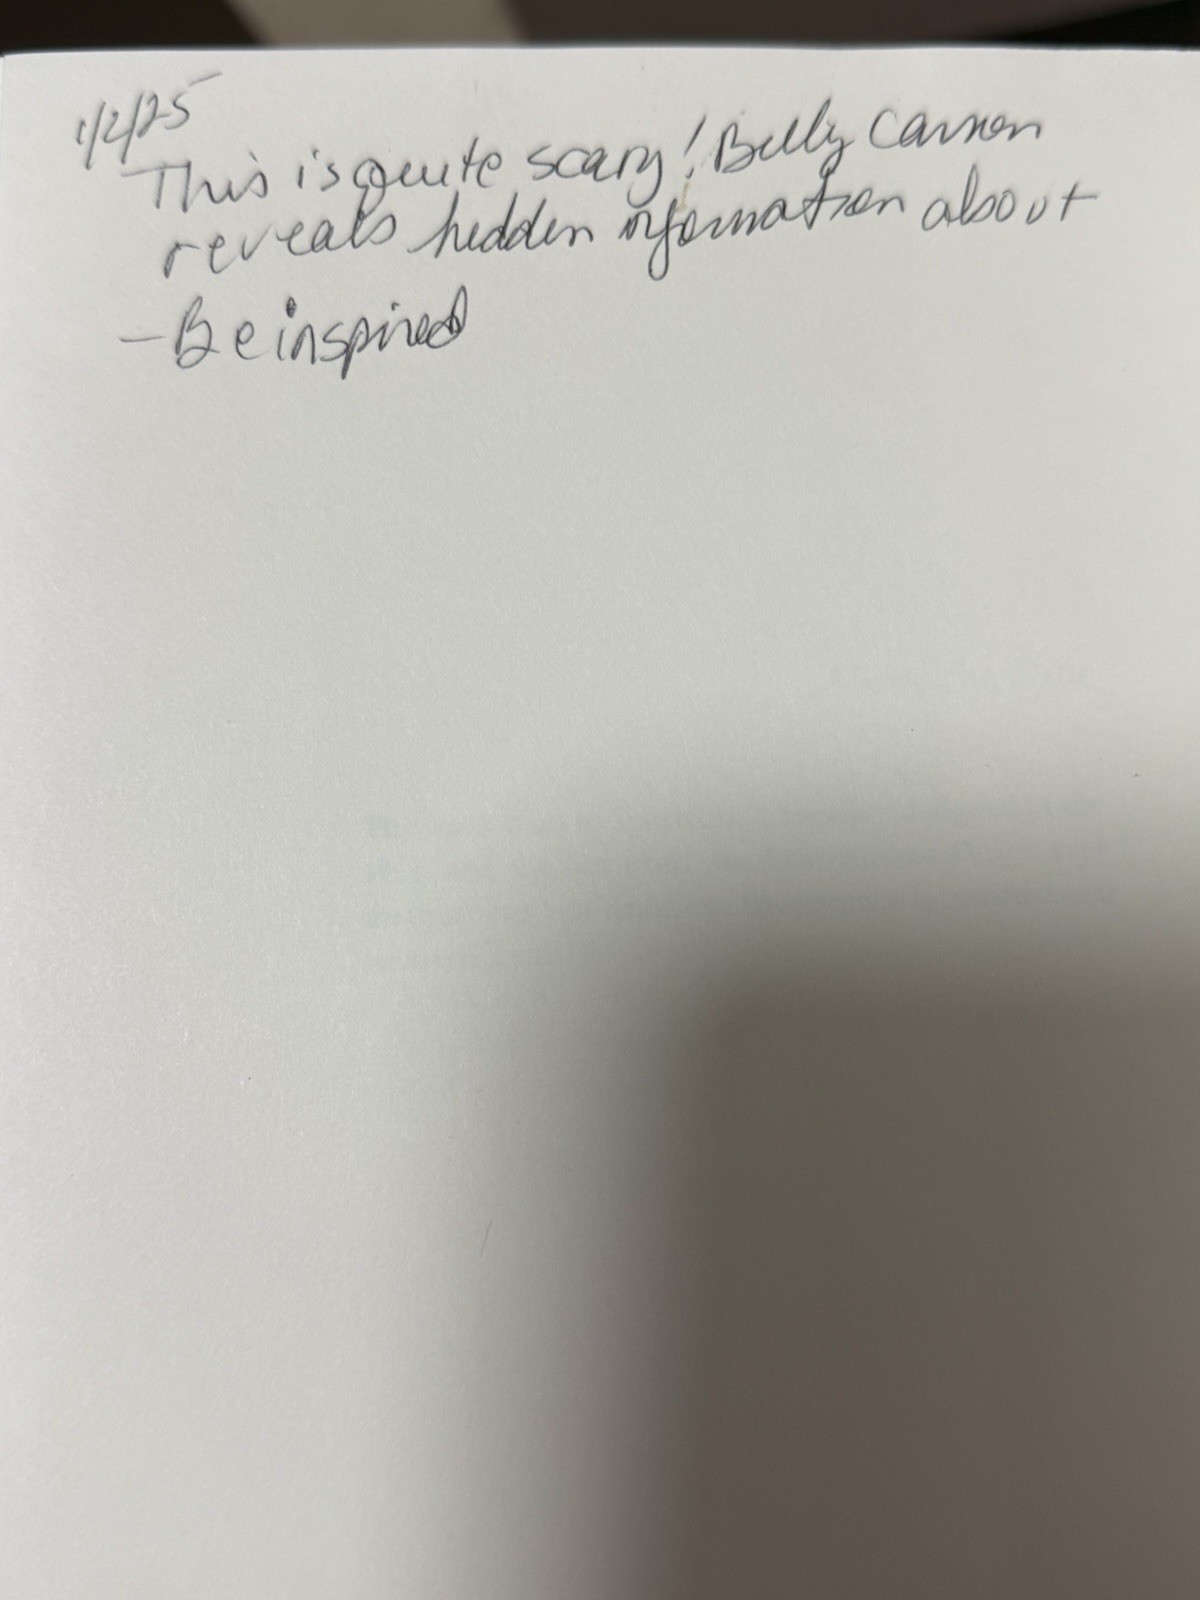 1/2/25
This is quite scary! Billy Carson
reveals hidden information about
- Be inspired